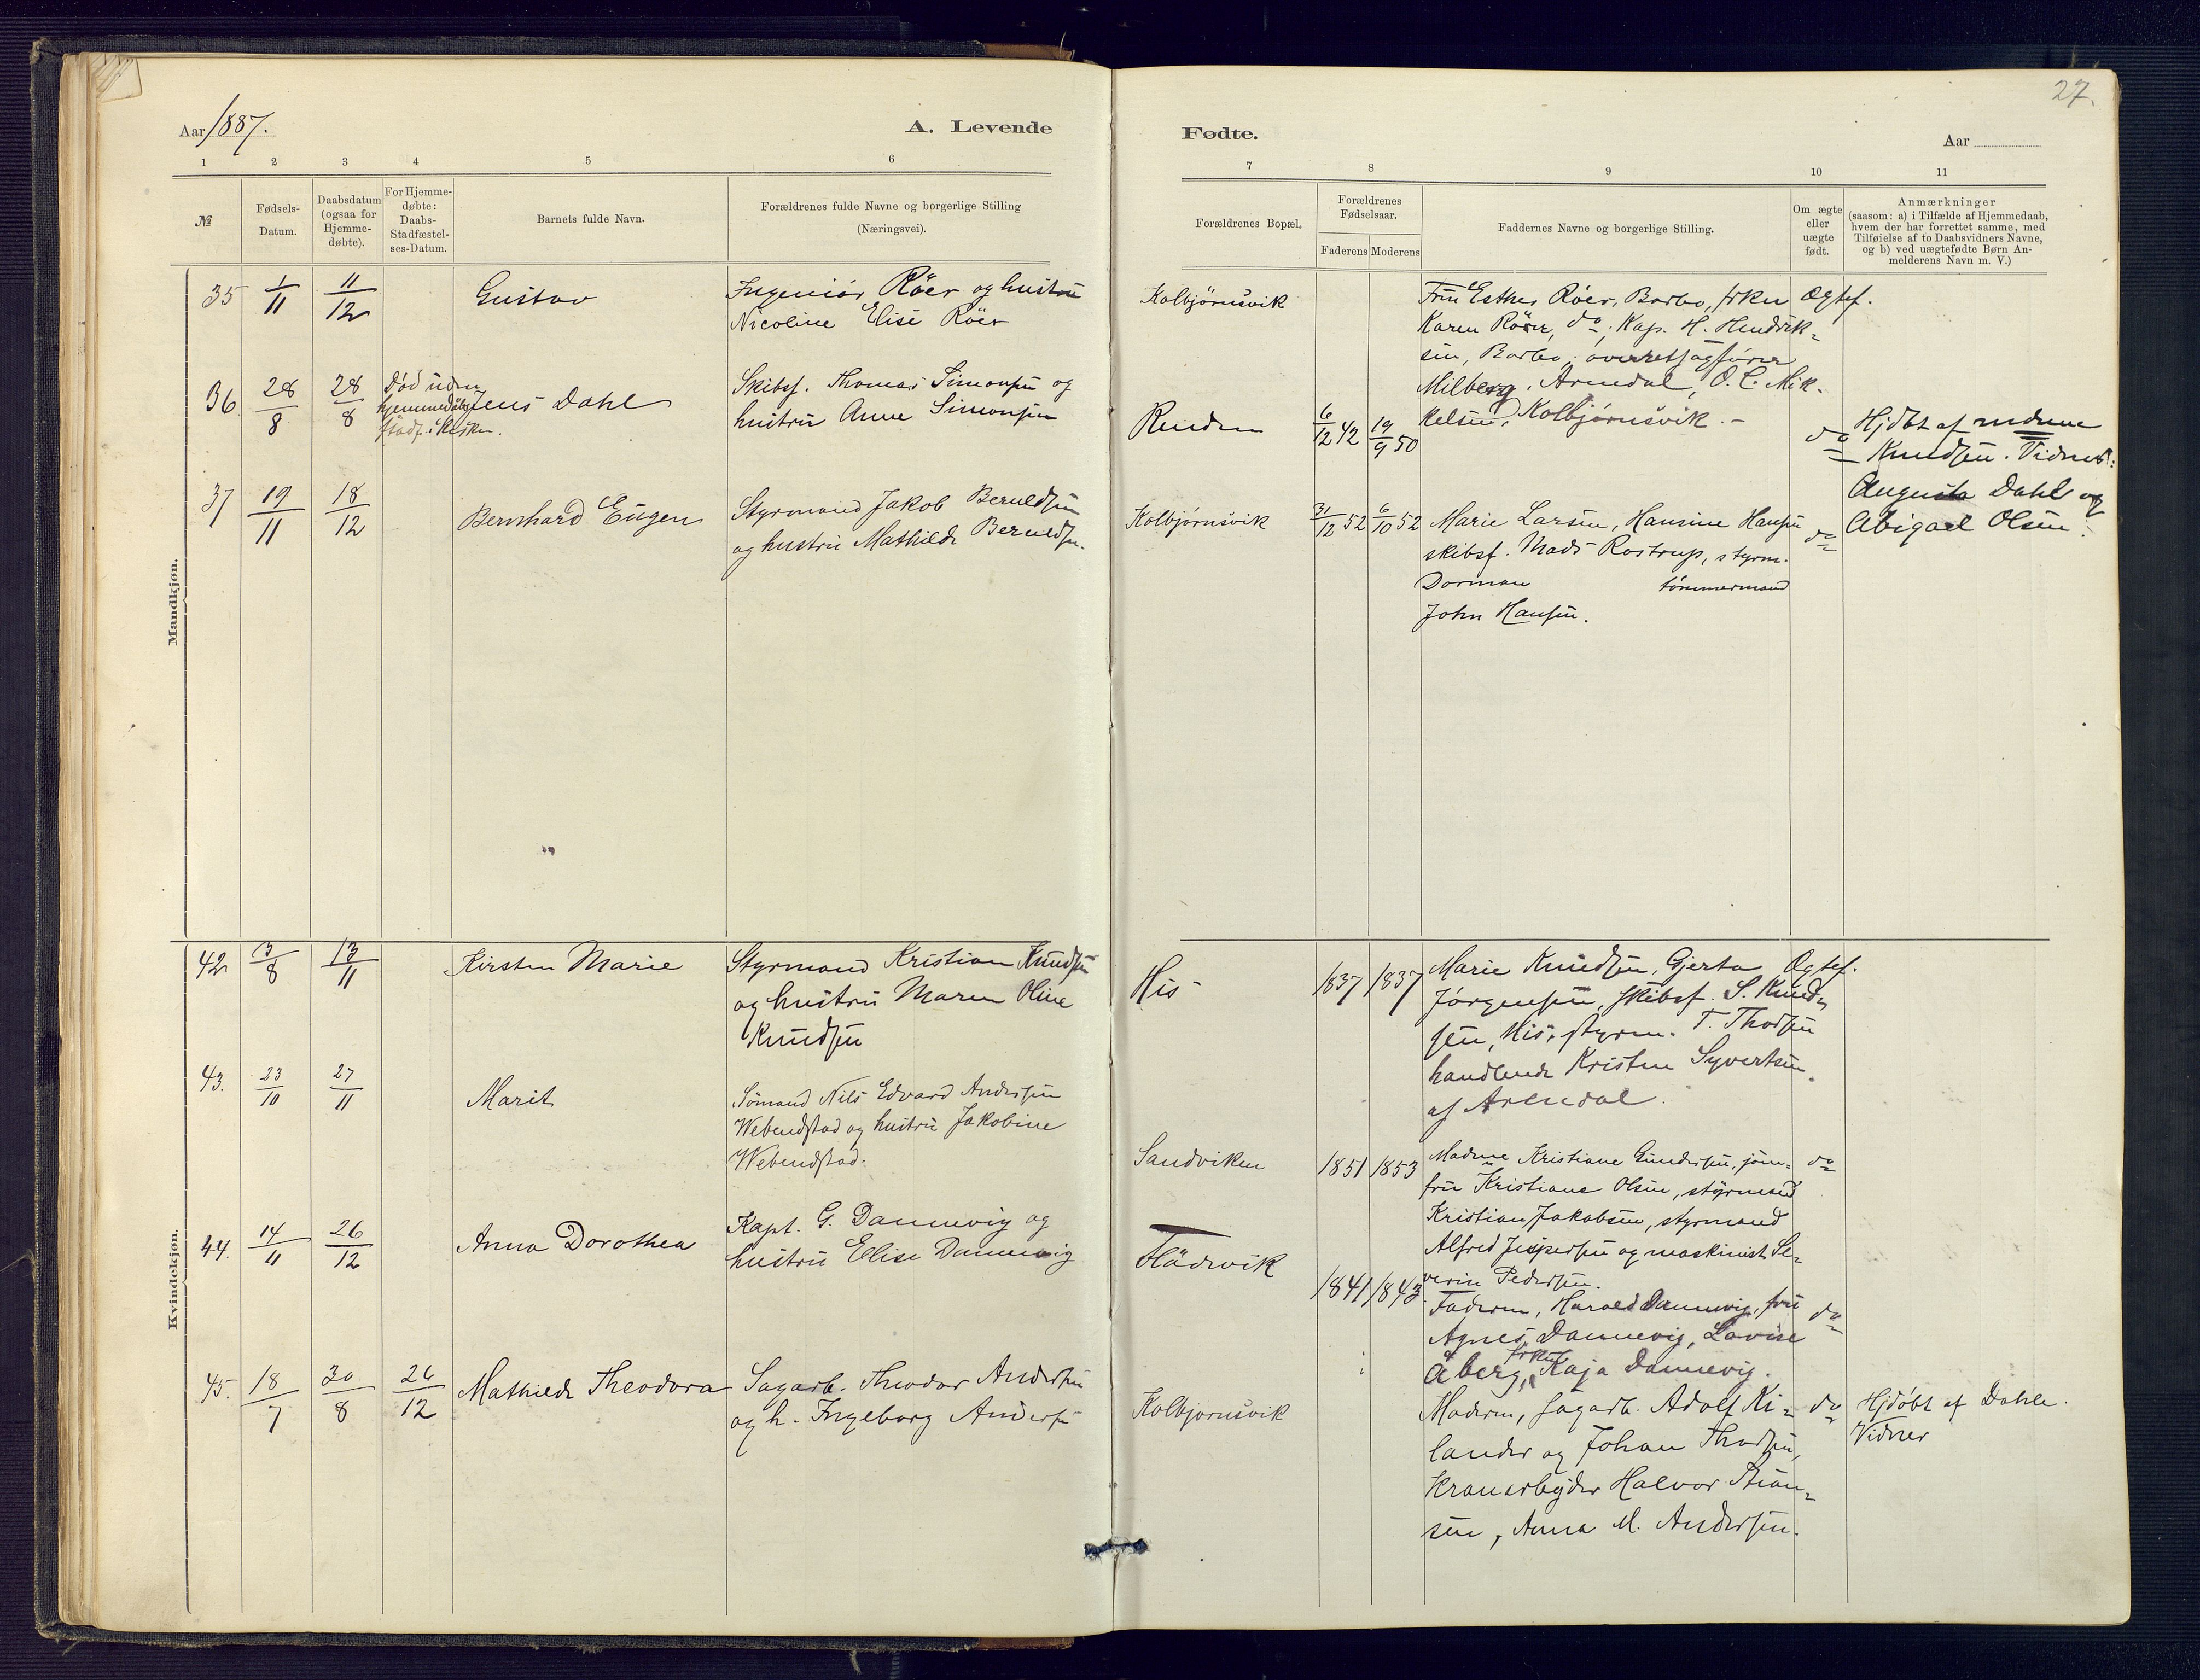 27.
Aar 1887.
A. Levende
Fødte.
Aar
1 2 3 4 5 6
7 8 9 10 11
№
Fødsels-
Datum.
Daabsdatum
(ogsaa for
Hjemme-
døbte).
For Hjemme-
døbte:
Daabs-
Stadfæstel-
ses-Datum.
Barnets fulde Navn.
Forældrenes fulde Navne og borgerlige Stilling
(Næringsvei).
Forældrenes Bopæl.
Forældrenes
Fødselsaar.
Faderens Moderens
Faddernes Navne og borgerlige Stilling.
Om ægte
eller
uægte
født.
Anmærkninger
(saasom: a) i Tilfælde af Hjemmedaab,
hvem der har forrettet samme, med
Tilføielse af to Daabsvidners Navne,
og b) ved uægtefødte Børn An-
melderens Navn m. V.)
Mandkjøn.
35 1/11 11/12 Gustav
Ingeniór Röer og hustru
Nicoline Elise Röer
Kolbjörnsvik
Fru Esther Röer, Barbo, frkn
Karen Röer, do, Kap. H. Hendrik-
sen, Barbo, overretsagfører
Milberg, Arendal, O. C. Mik-
kelsen, Kolbjørnsvik.-
Ægtef.
36. 28/8 28/8
Död uden
hjemmedøbs
stadf. i Kirken.
Jens Dahl
Skibsf. Thomas Simonsen og
hustru Anne Simonsen
Renden
6/12 42 19/9 50
do
Hjdbt af mdme
Knudsen. Vidner:
Augusta Dahl og
Abigael Olsen.
37 19/11 18/12 Bernhard Eugen
Styrmand Jakob Beruldsen
og hustru Mathilde Beruldsn.
Kolbjörnsvik
31/12 52 6/10 52
Marie Larsen, Hansine Hansen
skibsf. Mads Rostrup, styrm.
Dorman tömmermand
John Hansen.
do
Kvindekjøn.
42 3/8 13/11 Kirsten Marie
Styrmand Kristian Knudsen
og hustru Maren Oline
Knudsen
His
1837 1837
Marie Knudsen, Gjerta
Jörgensen, skibsf. S. Knud-
sen, His, styrm. T. Thorsen
handlende Kristen Syvertsen
af Arendal.
Ægtef.
43. 23/10 27/11 Marit
Sömand Nils Edvard Andersen
Webendstad og hustru Jakobine
Webendstad.
Sandviken
1851 1853
Madme Kristiane Gundersen, jom-
fru Kristiane Olsen, styrmand
Kristian Jakobsen, styrmand
Alfred Jespersen og maskinist Se-
verin Pedersen.
do
44. 14/11 26/12 Anna Dorothea
Kapt. G. Dannevig og
hustru Elise Dannevig
Flödevik
1841 1843
Faderen, Harald Dannevig, fru
Agnes Dannevig, Lovise
Åberg, frkn Kaja Dannevig.
do
45. 18/7 30/8 26/12 Mathilde Theodora
Sagarb. Theodor Andersen
og h. Ingeborg Andersen
Kolbjornsvik
Moderen, sagarb. Adolf Ki-
lander og Johan Thorsen,
Kranarbejder Halvor Stian-
sen, Anna M. Andersen.
do
Hjdöbt af Dahle.
Vidner